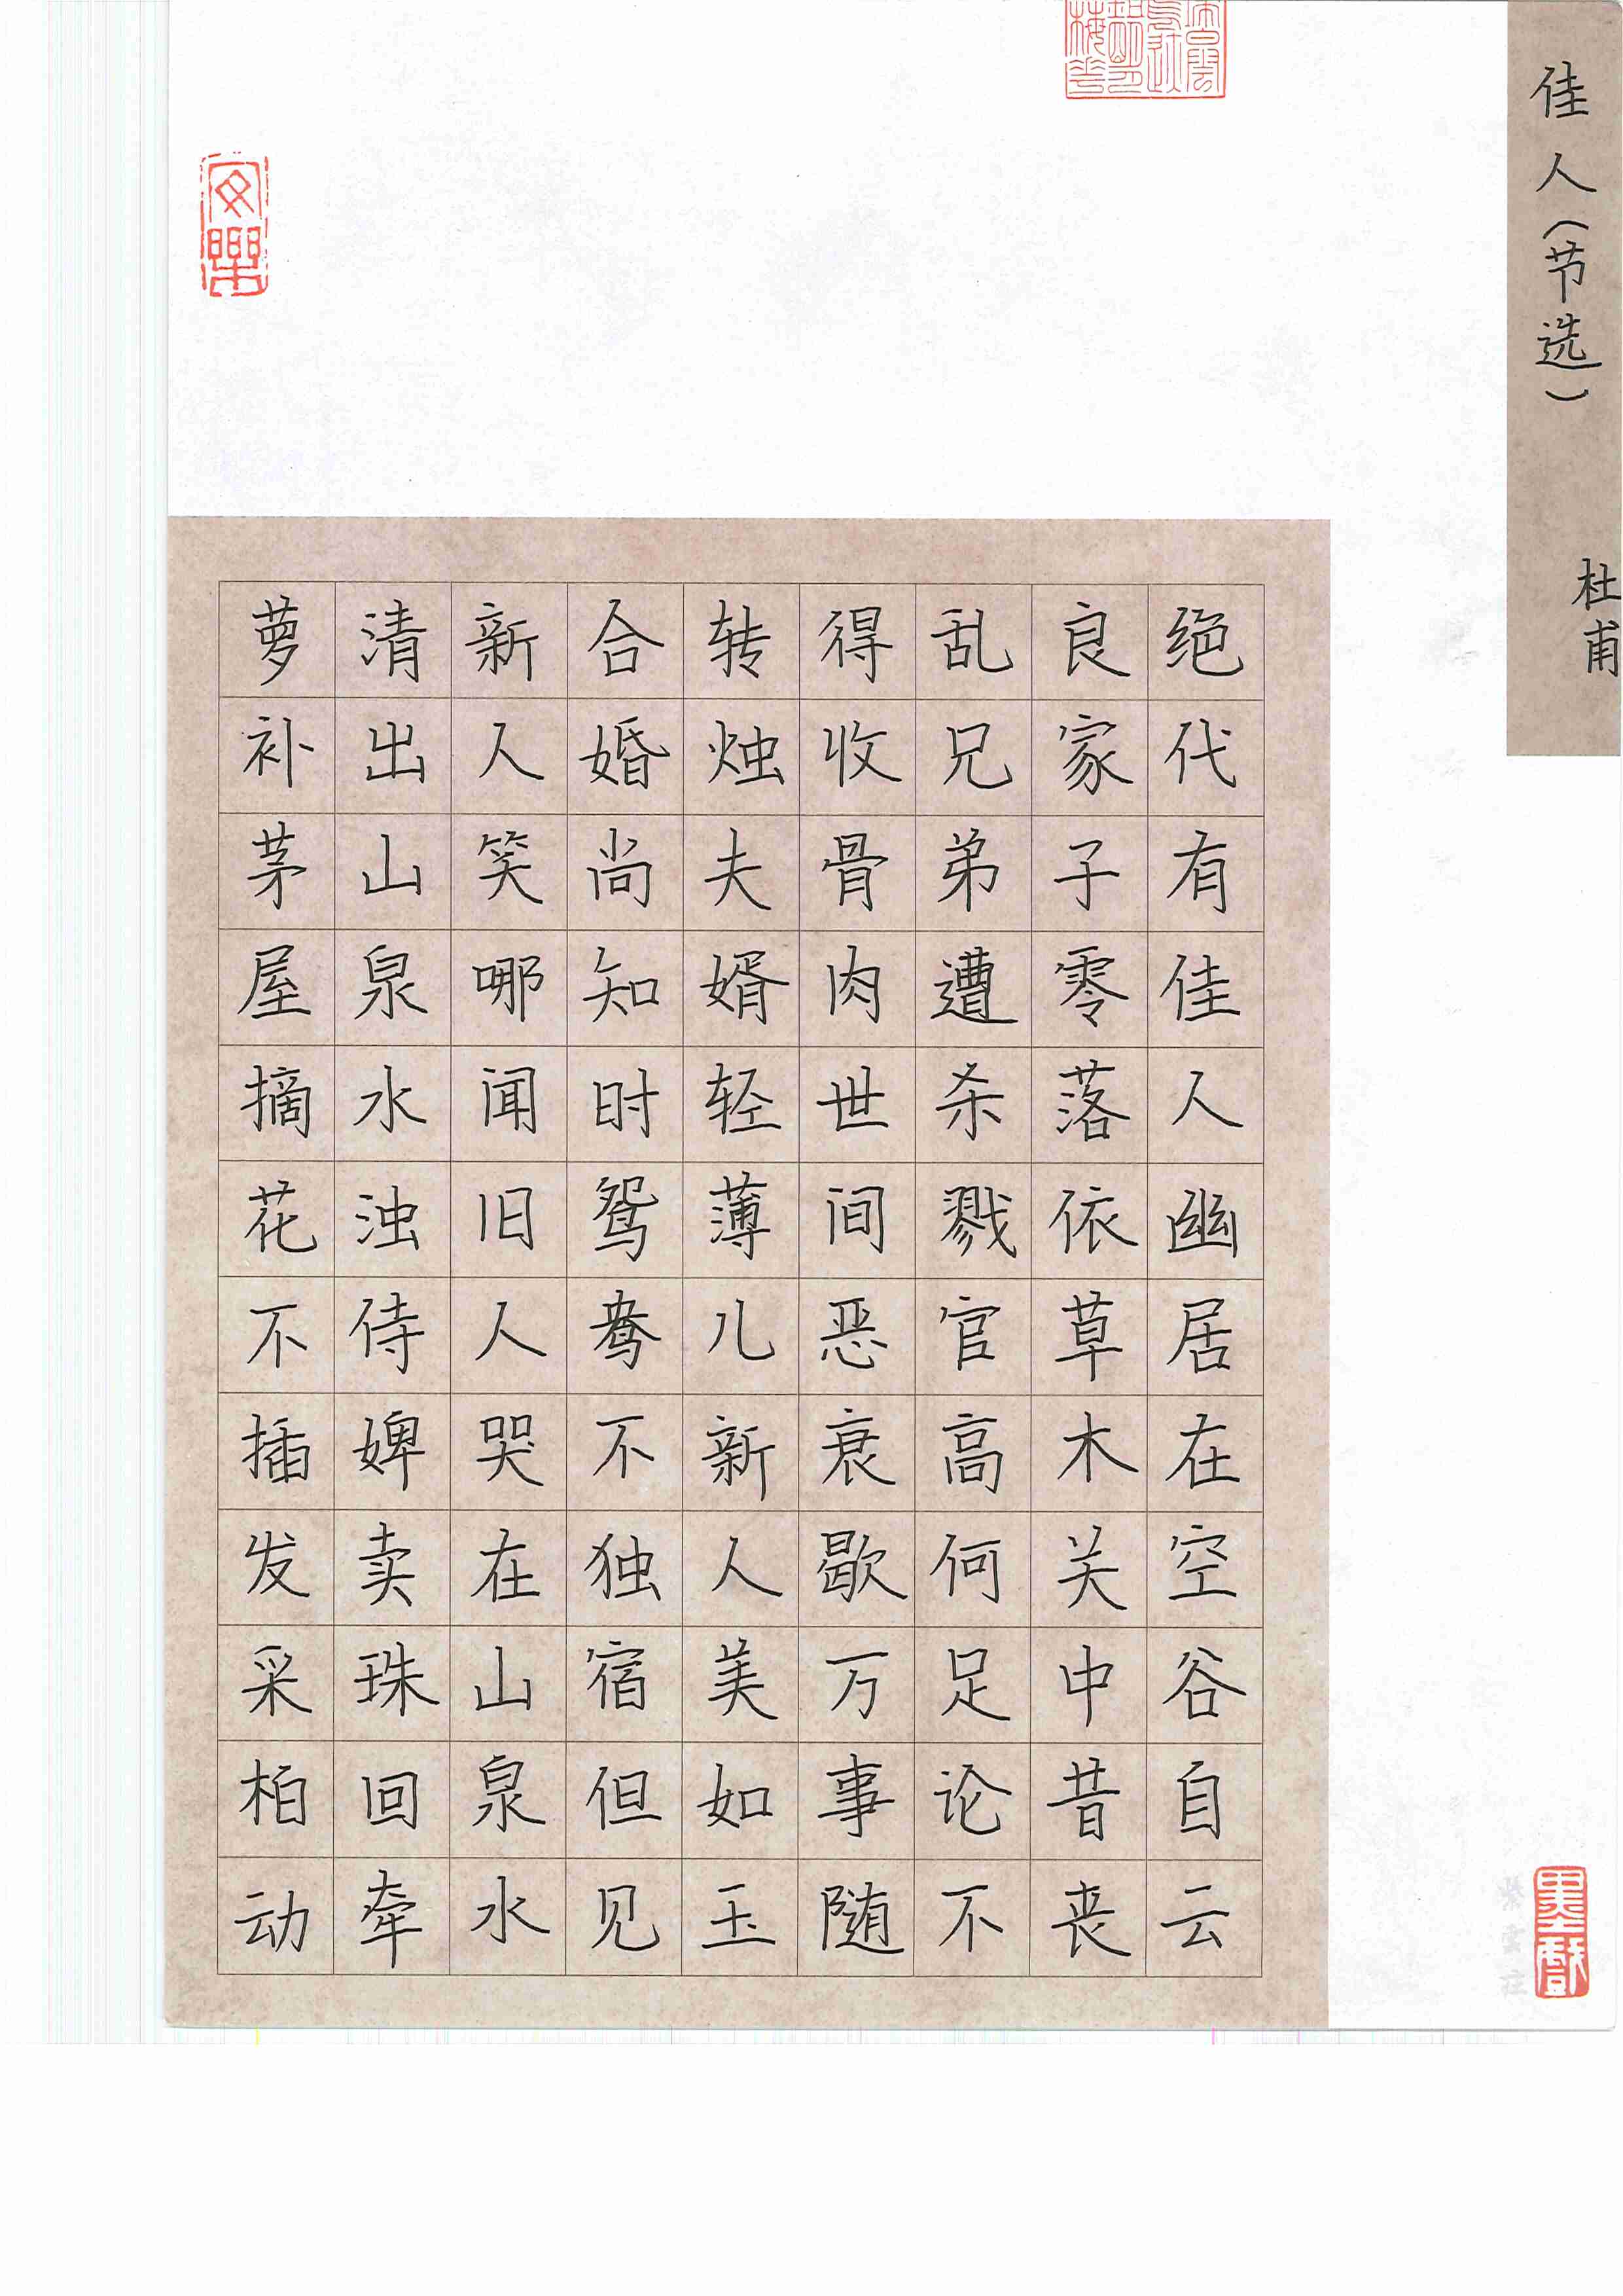 佳人（节选）
杜甫
绝代有佳人幽居在空谷自云
良家子零落依草木关中昔丧
乱兄弟遭杀戮官高何足论不
得收骨肉世间恶衰歇万事随
转烛夫婿轻薄儿新人美如玉
合婚尚知时鸳鸯不独宿但见
新人笑哪闻旧人哭在山泉水
清出山泉水浊侍婢卖珠回牵
萝补茅屋摘花不插发采柏动
墨戲